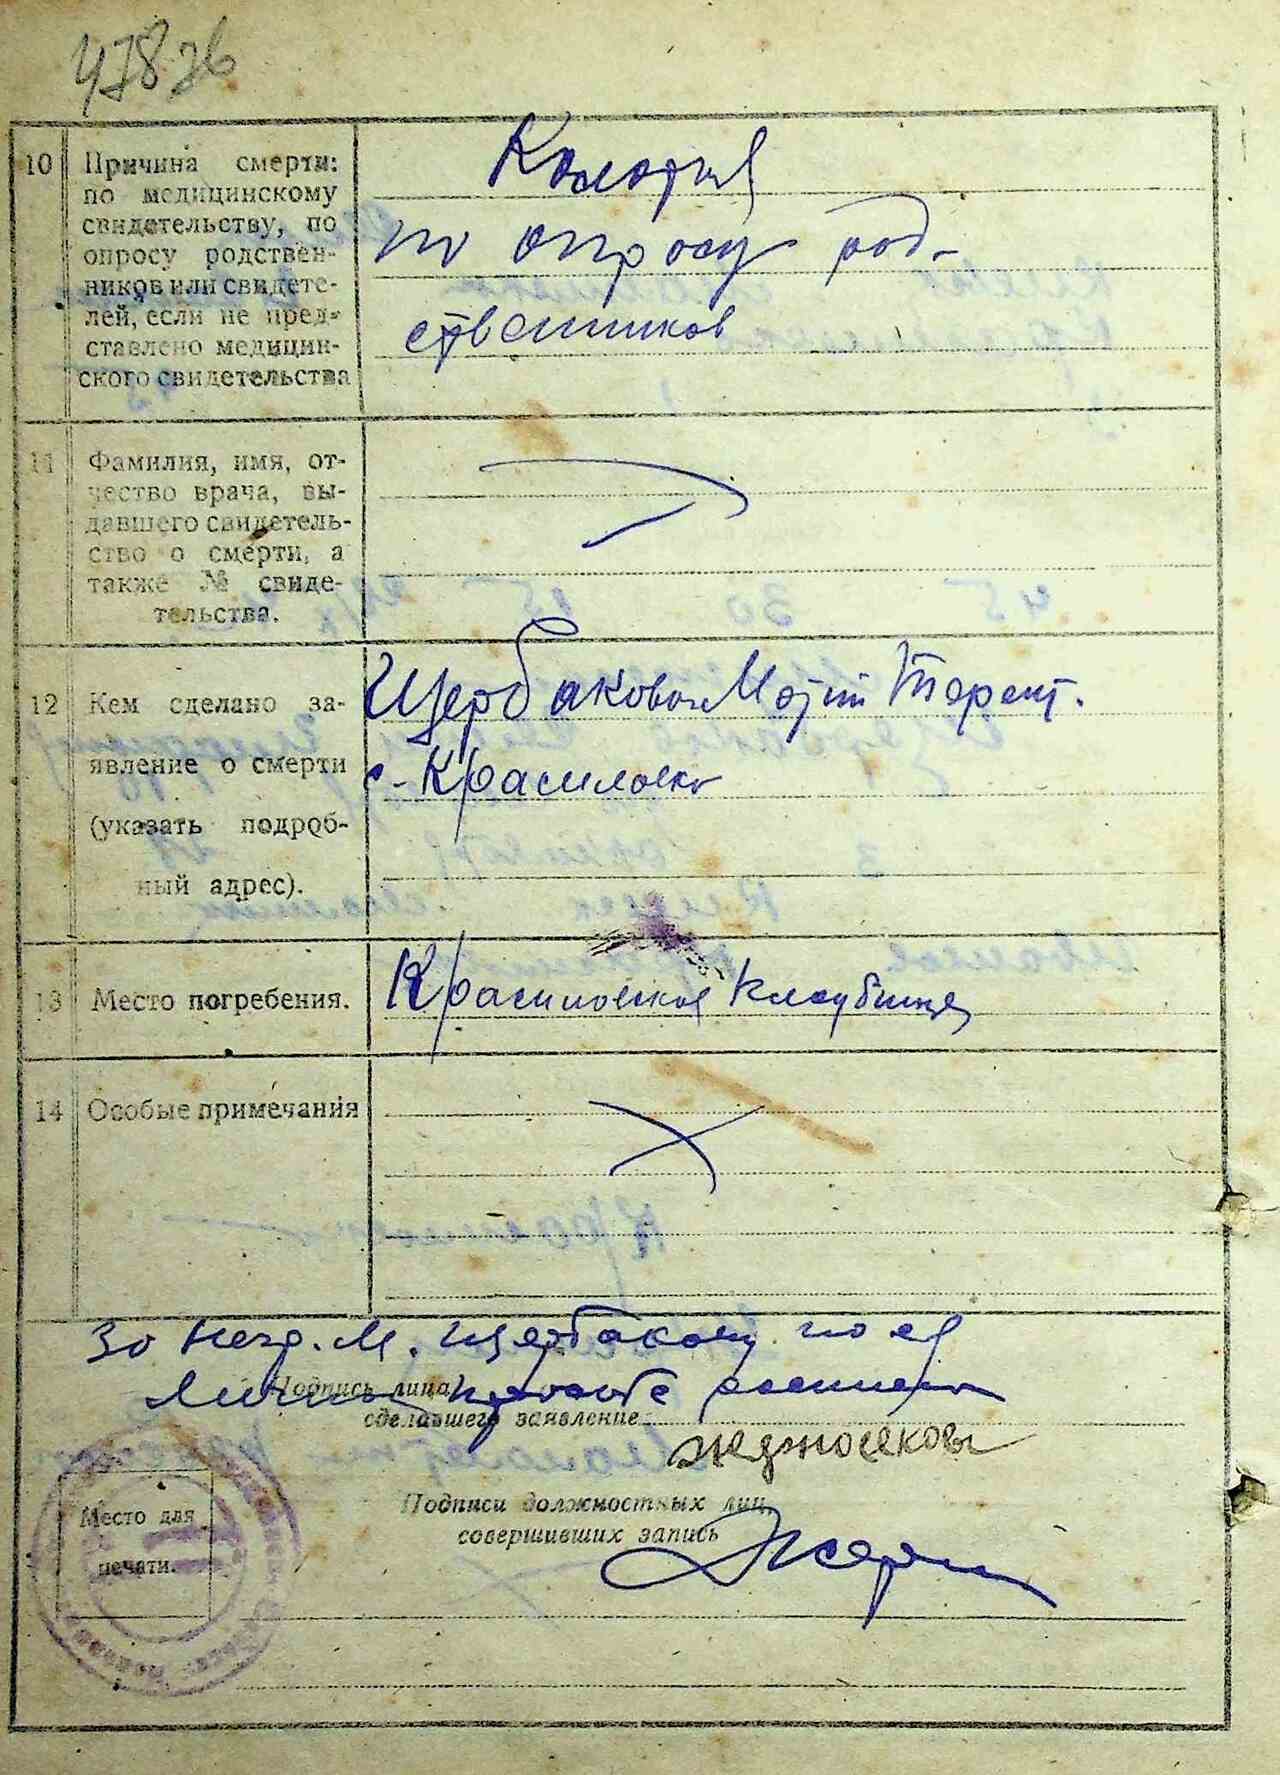 47876
10
Причина смерти:
по медицинскому
свидетельству, по
опросу родствен-
ников или свидете-
лей, если не пред-
ставлено медицин-
ского свидетельства
по опросу род-
ственников
11
Фамилия, имя, от-
чество врача, вы-
давшего свидетель-
ство о смерти, а
также № свиде-
тельства.
12
Кем сделано за-
явление о смерти
(указать подроб-
ный адрес).
Щербаковой Терент.
с-Красиловка
13
Место погребения.
Красиловское кладбище
14
Особые примечания
За негр. М. Щербакову по её
личной просьбе
Подпись лица,
сделавшего заявление
Подписи должностных лиц,
совершивших запись
Место для
печати.